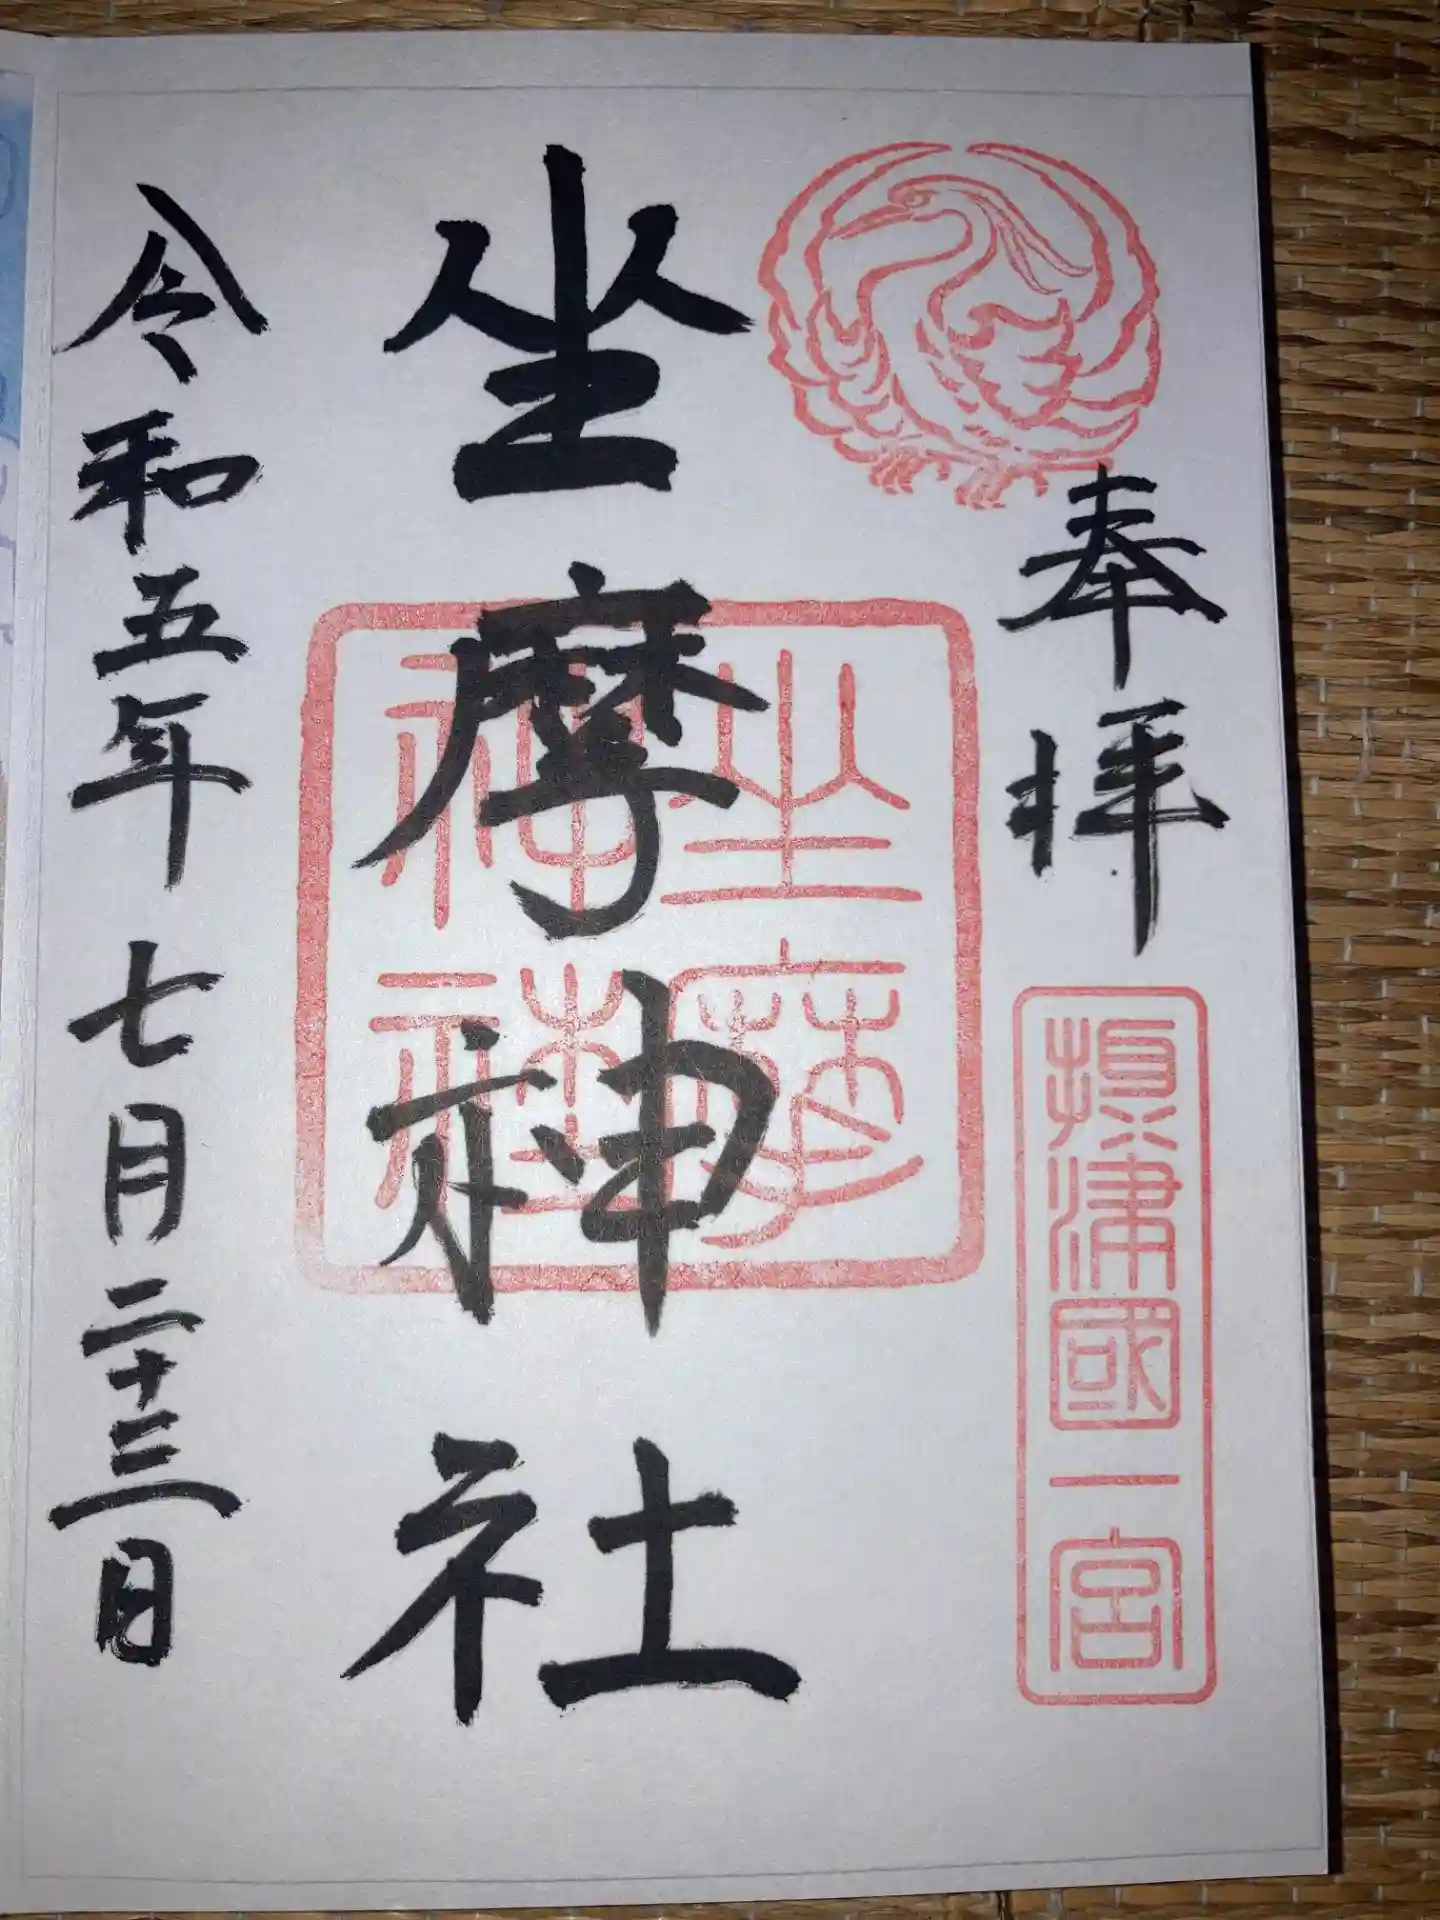 奉拝
摂津國一宮
坐摩神社
坐摩
神社
令和五年七月二十三日